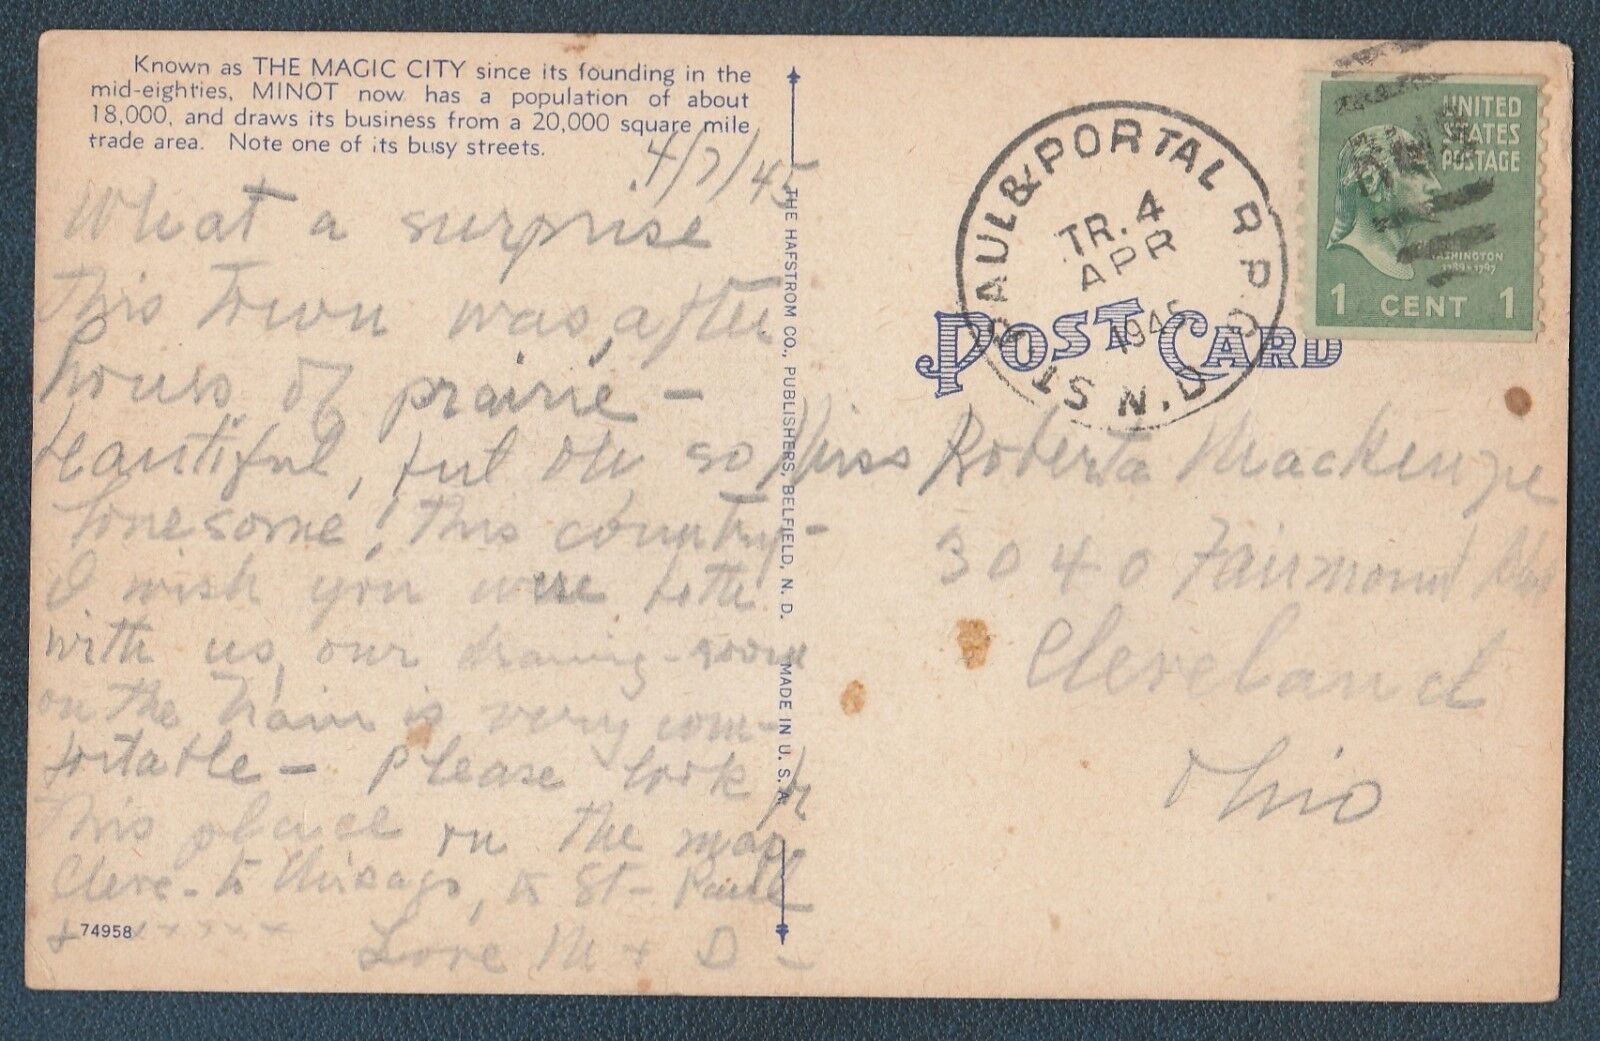 Known as THE MAGIC CITY since its founding in the
mid-eighties, MINOT now has a population of about
18,000, and draws its business from a 20,000 square mile
trade area. Note one of its busy streets.
4/7/45
What a surprise
this town was, after
hours of prairie -
beautiful, but Oh so
lonesome, this country -
I wish you were both
with us, our drawing-room
on the train is very com-
fortable - Please look for
this place on the map.
Cleve - to Chicago, to St - Paul
x x x x x x
Love M + D -
74958
THE HAFSTROM CO., PUBLISHERS, BELFIELD, N. D. MADE IN U. S. A.
ST. PAUL & PORTAL R.P.O.
TR. 4
APR
1945
N.D.
UNITED
STATES
POSTAGE
WASHINGTON
1789-1797
1 CENT 1
POST CARD
Miss Roberta Mackenzie
3040 Fairmount
Cleveland
Ohio